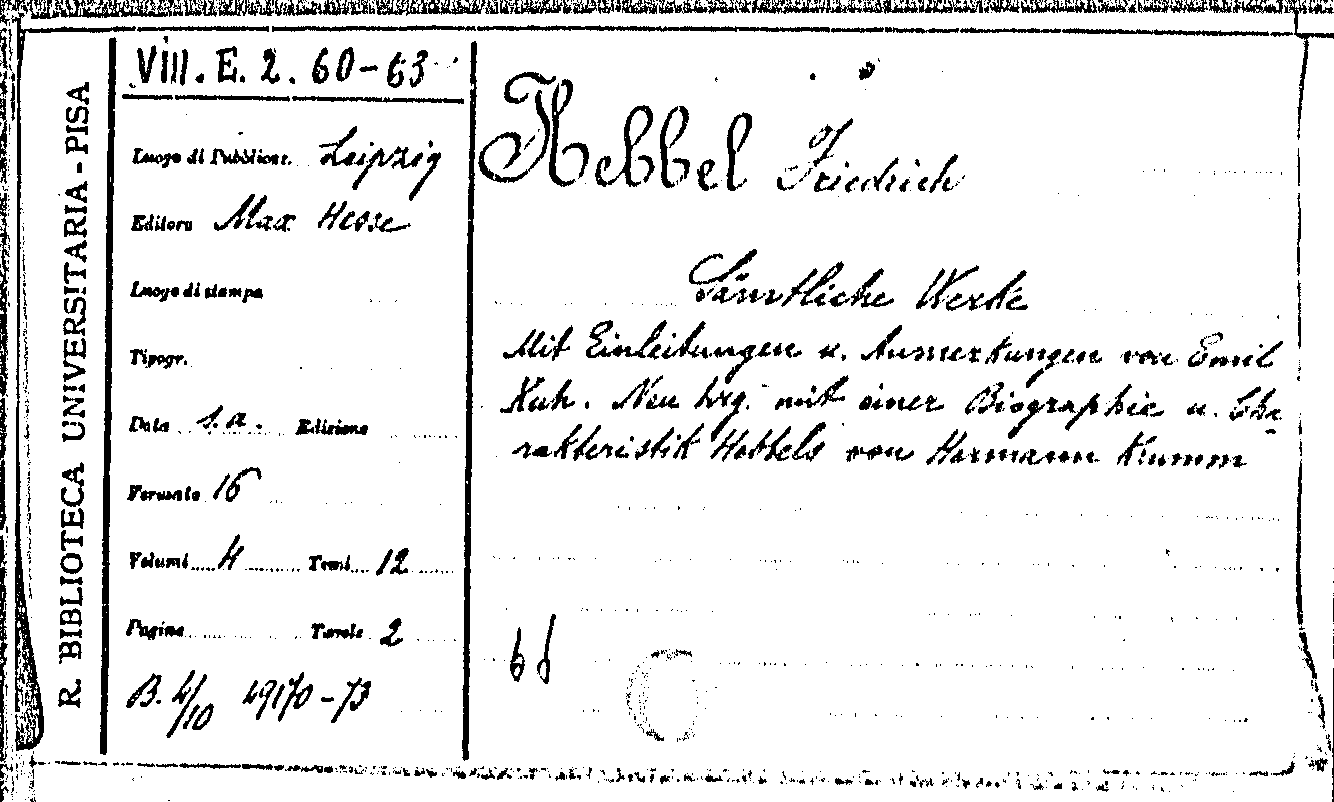 R. BIBLIOTECA UNIVERSITARIA - PISA
VIII. E. 2. 60-63
Luogo di Pubblicaz. Leipzig
Editore Max Hesse
Luogo di stampa
Tipogr.
Data s.a. Edizione
Formato 16
Volumi 4 Tomi 12
Pagine Tavole 2
B. 4/10 49170-73
Hebbel Friedrich
Sämtliche Werke
Mit Einleitungen u. Anmerkungen von Emil
Kuh. Neu hrg. mit einer Biographie u. Cha-
rakteristik Hebbels von Hermann Krumm